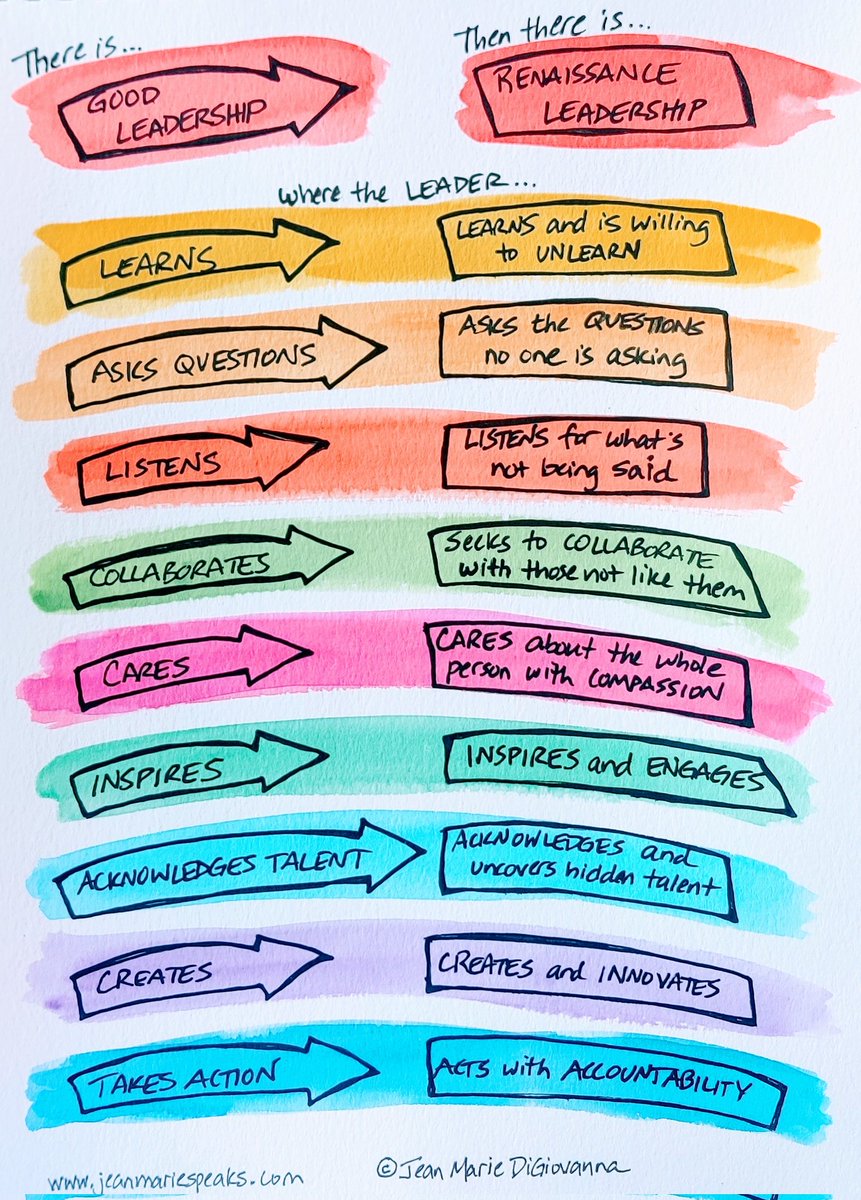 There is...
Then there is...
GOOD
LEADERSHIP
RENAISSANCE
LEADERSHIP
where the LEADER...
LEARNS
LEARNS and is willing
to UNLEARN
ASKS QUESTIONS
ASKS the QUESTIONS
no one is asking
LISTENS
LISTENS for what's
not being said
COLLABORATES
Seeks to COLLABORATE
with those not like them
CARES
CARES about the whole
person with COMPASSION
INSPIRES
INSPIRES and ENGAGES
ACKNOWLEDGES TALENT
ACKNOWLEDGES and
uncovers hidden talent
CREATES
CREATES and INNOVATES
TAKES ACTION
ACTS with ACCOUNTABILITY
www.jeanmariespeaks.com
©Jean Marie DiGiovanna